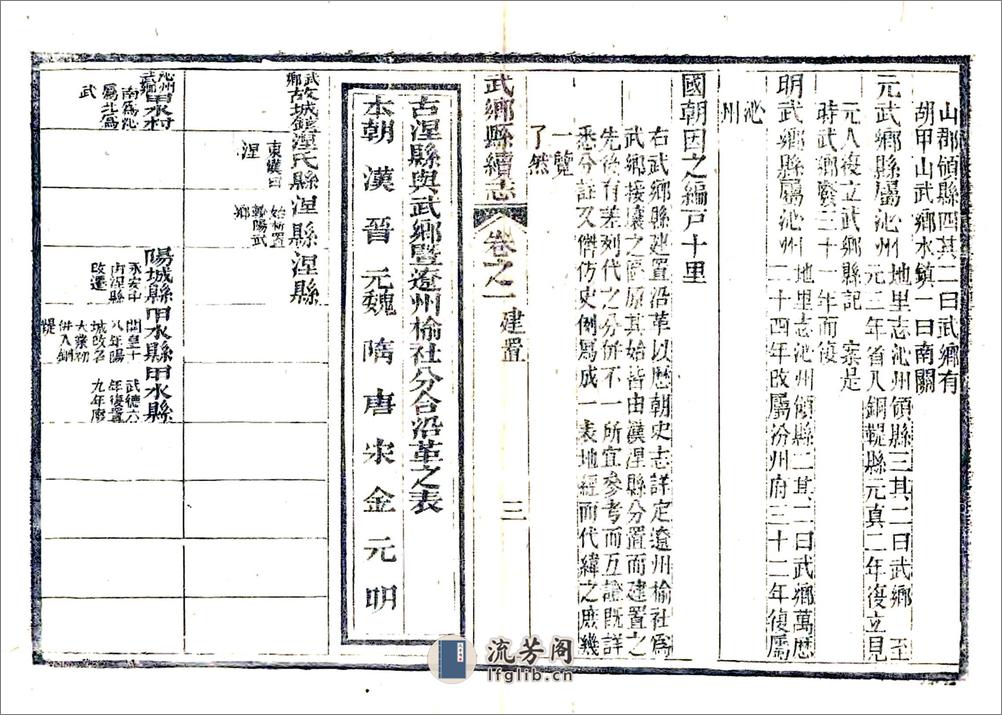 山郡領縣四其二曰武鄉有
胡甲山武鄉水鎮一曰南關
元武鄉縣屬沁州 地里志沁州領縣三其二曰武鄉 至
元二年省入銅鞮縣元真二年復立見
元人復立武鄉縣記 案是
時武鄉廢三十一年而復
明武鄉縣屬沁州 地里志沁州領縣二其二曰武鄉萬歷
二十四年改屬汾州府三十二年復屬
沁
州
國朝因之編戶十里
右武鄉縣建置沿革以歷朝史志詳定遼州榆社為
武鄉接壤之區原其始皆由漢涅縣分置而建置之
先後有差列代之分併不一所宜參考而互證既詳
悉分註又倣史例為成一表地經而代緯之庶幾
一覽
了然
武鄉縣續志 卷之一 建置 三
古涅縣與武鄉暨遼州榆社分合沿革之表
本朝 漢 晉 元魏 隋 唐 宋 金 元 明
武鄉故城鎮 涅氏縣 涅縣 涅縣
東漢曰
涅
始析置
鄉
沁州
甲水村
南為沁
屬北為
武
陽城縣 甲水縣 甲水縣
永安中
內涅縣
改遷
開皇十
八年陽
城改名
大業初
併入銅
鞮
武德六
年復置
九年廢
流芳阁
lfglib.cn